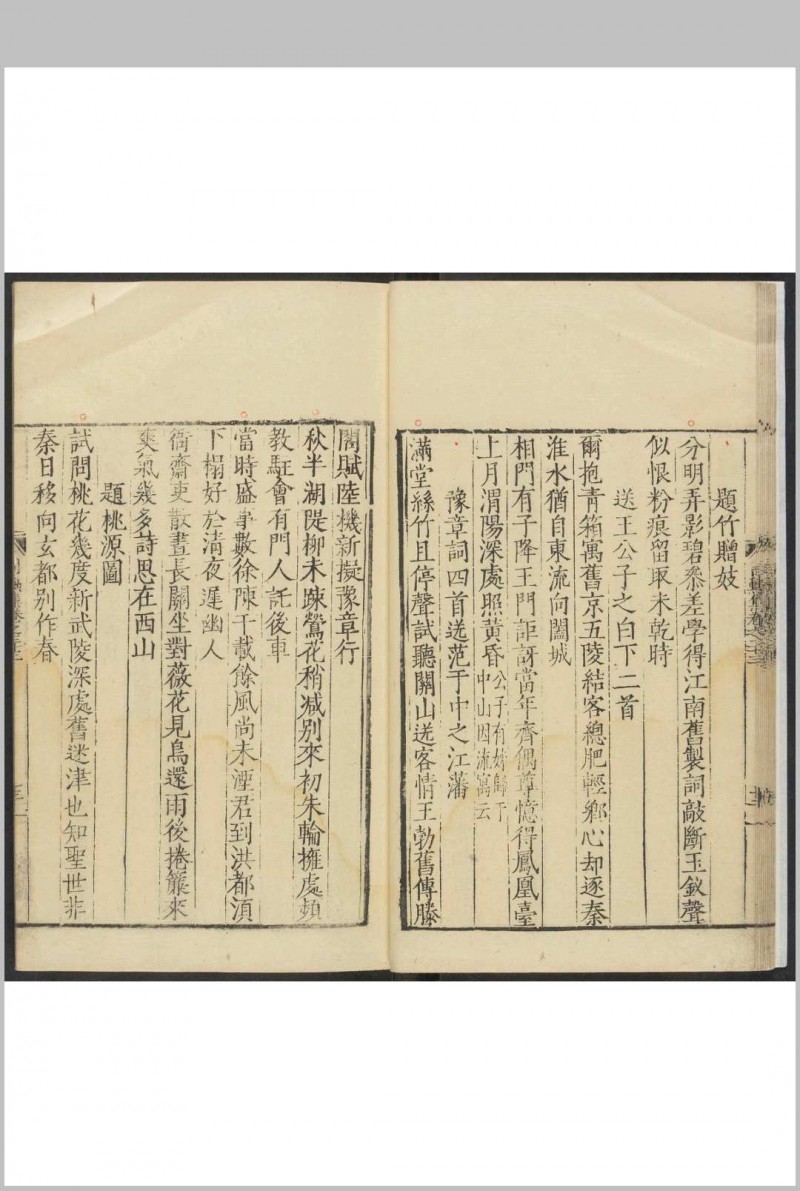 題竹贈妓
分明弄影碧叅差學得江南舊製詞敲斷玉釵聲
似恨粉痕留取未乾時
送王公子之白下二首
爾抱青箱寓舊京五陵結客總肥輕鄉心却逐秦
淮水猶自東流向闔城
相門有子降王門詎訝當年齊偶尊憶得鳳凰臺
上月渭陽深處照黃昏公子有姊歸于
中山因流寓云
豫章詞四首送范于中之江藩
滿堂絲竹且停聲試聽關山送客情王勃舊傳滕
閣賦陸機新擬豫章行
秋半湖隄柳未踈鶯花稍減別來初朱輪擁處頻
教駐會有門人託後車
當時盛事數徐陳千載餘風尚未湮君到洪都須
下榻好於清夜遲幽人
衙齋吏散晝長關坐對薇花見鳥還雨後捲簾來
爽氣幾多詩思在西山
題桃源圖
試問桃花幾度新武陵深處舊迷津也知聖世非
秦日移向玄都別作春